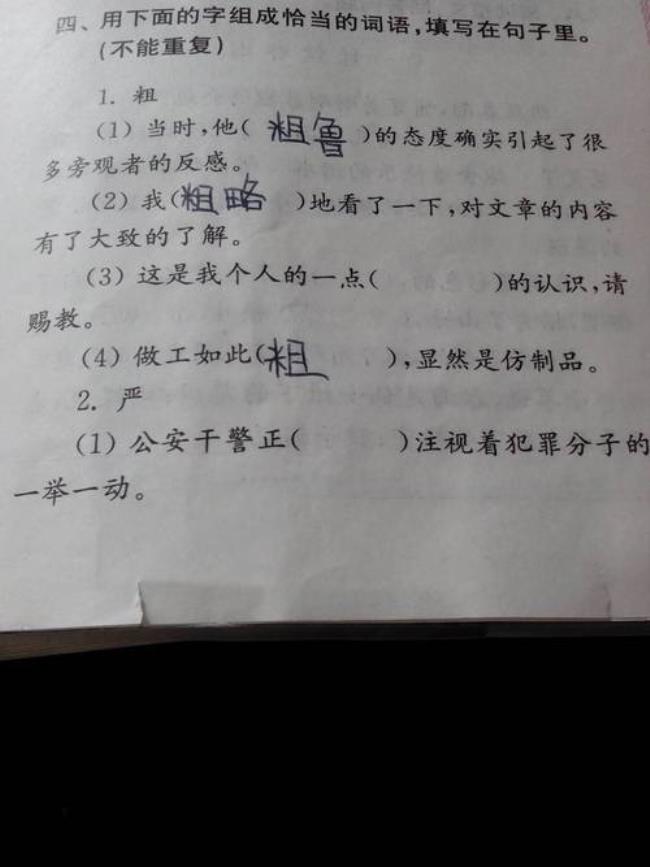 四、用下面的字组成恰当的词语,填写在句子里。
(不能重复)
1. 粗
(1) 当时,他( 粗鲁 )的态度确实引起了很
多旁观者的反感。
(2) 我(粗略 )地看了一下,对文章的内容
有了大致的了解。
(3) 这是我个人的一点( )的认识,请
赐教。
(4) 做工如此(粗 ),显然是仿制品。
2. 严
(1) 公安干警正( )注视着犯罪分子的
一举一动。